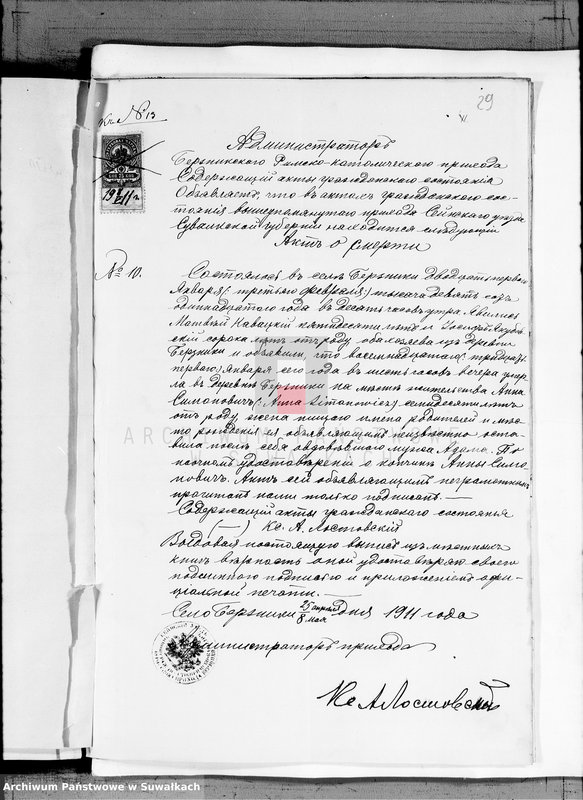 29
Къ № 13
19 11 г.
Администраторъ
Бержникскаго Римско-католическаго прихода
Содержащій акты гражданскаго состоянія
Объявляетъ, что въ актахъ гражданскаго сос-
тоянія вышеупомянутаго прихода Сейнскаго уѣзда
Сувалкской губерніи находится слѣдующій
Актъ о смерти
№ 10.
Состоялось въ селѣ Бержники двадцать перваго
Января (третьяго февраля) тысяча девять сотъ
одиннадцатаго года въ десять часовъ утра. Явились
Матвѣй Навацкій пятидесяти лѣтъ и
сорока лѣтъ отъ роду оба изъ деревни
Бержники и объявили, что восемнадцатаго (тридцать
перваго) Января сего года въ шесть часовъ вечера умер-
ла въ деревнѣ Бержники на мѣстѣ жительства Анна
Симановичъ (Anna Simanowicz) семидесяти лѣтъ
отъ роду жена нищаго имена родителей и мѣс-
то рожденія ея объявляющимъ неизвѣстно оста-
вила послѣ себя овдовѣвшаго мужа Адама. По
настоящемъ удостовѣреніи о кончинѣ Анны Сима-
новичъ. Актъ сей объявляющимъ неграмотнымъ
прочитанъ нами только подписанъ. —
Содержащій акты гражданскаго состоянія
(—) Кс. А. Лостовскій
Выдавая настоящую выпись изъ
книгъ вѣрность оной удостовѣряю своею
подлинною подписью и приложеніемъ офи-
ціальной печати. —
Село Бержники 25 апрѣля / 8 мая дня 1911 года
Администраторъ прихода
Кс АЛостовскій
ARCHIWUM PAŃSTWOWE
W SUWAŁKACH
Archiwum Państwowe w Suwałkach